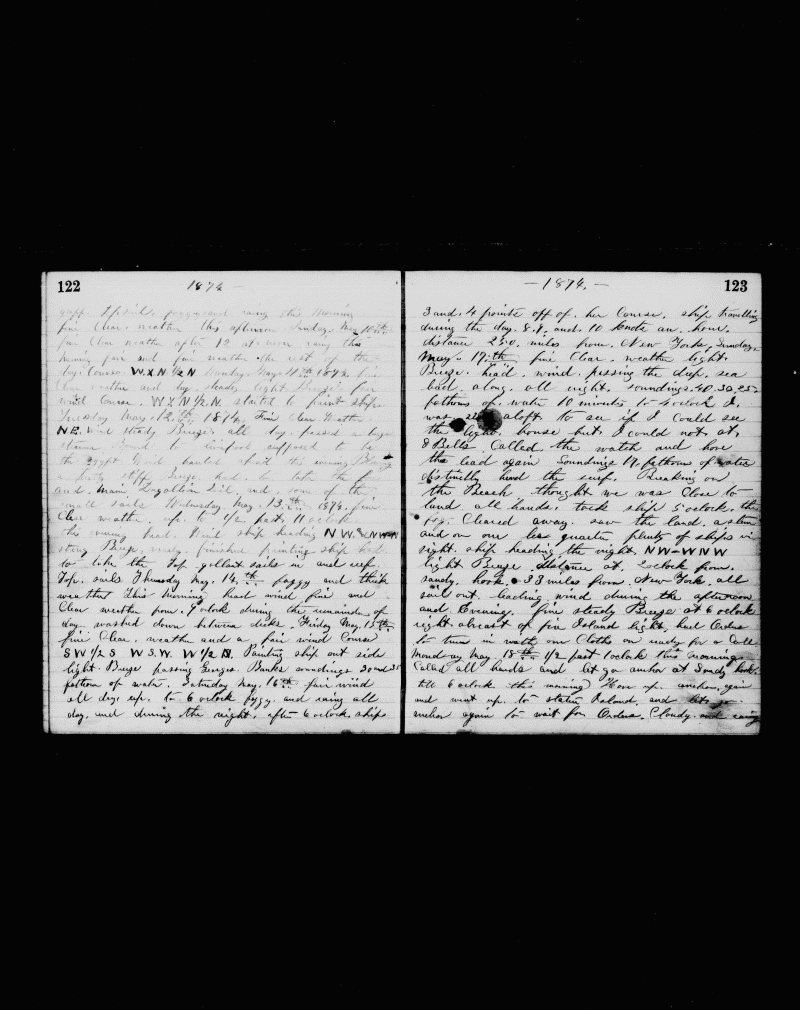 122
1874
fair Clear weather this afternoon Sunday May 10th
fair Clear weather after 12 at noon
having fair and fair weather the rest of the
day. Course. W X N 1/2 N Monday May 11th 1874
Clear weather and dry steady light Breeze fair
wind Course. W X N 1/2 N. started to paint ship
Tuesday May. 12th 1874, Fine Clear Weather
N.E. Wind steady Breeze all day. passed a large
steam Liverpool supposed to be
the Egypt hauled this evening
a Breeze had to take the
and main Topgallan Sail and some of the
small sails Wednesday May. 13th 1874. fine
Clear weather. up. to 1/2 past 11 oclock
this evening head Wind ship heading N W.
strong Breeze. finished painting ship had
to take the Top gallant sails in and reef
Top. sails Thursday May, 14th foggy and thick
weather This Morning head wind fair and
Clear weather from. 9 oclock during the remainder of
day. washed down between decks. Friday May. 15th
fine Clear. weather and a fair wind Course
S W 1/2 S W S. W. W 1/2 N. Painting ship out side
light. Breeze passing Georges. Banks soundings 30 and 35
fathom of water. Saturday May. 16th fair wind
all day. up. to 6 oclock foggy. and raing all
day. and during the night. after 6 oclock ships
— 1874. —
123
3 and. 4 points off of. her Course. ship travelling
during the day. 8. 9. and. 10 knots an. hour.
distance 250. miles from. New York. Sunday.
May. 17th fine Clear. weather light.
Breeze. head. wind. passing the deep. sea
lead. along. all night. soundings. 40. 30. 25.
fathoms of. water 10 minutes to 4 oclock I.
was aloft to see if I could see
the light. house but I could not at.
8 Bells. Called the watch and hove
the lead again Soundings 17 fathoms of water
distinctly heard the surf. Breaking on
the Beach thought we was Close to
land all hands. tack ship 5 oclock. the
fog. Cleared away. saw the land. a stern
and on our lee quarter plenty of ships in
sight. ship heading the night. N W – W N W
light Breeze distance at. 2 oclock from.
sandy. hook. 38 miles from. New York. all
sail out. leading wind during the afternoon
and Evening. fine steady Breeze at 6 oclock
right. abreast of fire Island light, had Orders
to turn in with our Cloths on ready for a Call
Monday May 18th 1/2 past 1 oclock this morning
Called all hands and let go anchor at Sandy hook.
till 6 oclock. this morning Hove up. anchor. again
and went up. to staten Island. and let go
anchor again to wait for. Orders. Cloudy and raing